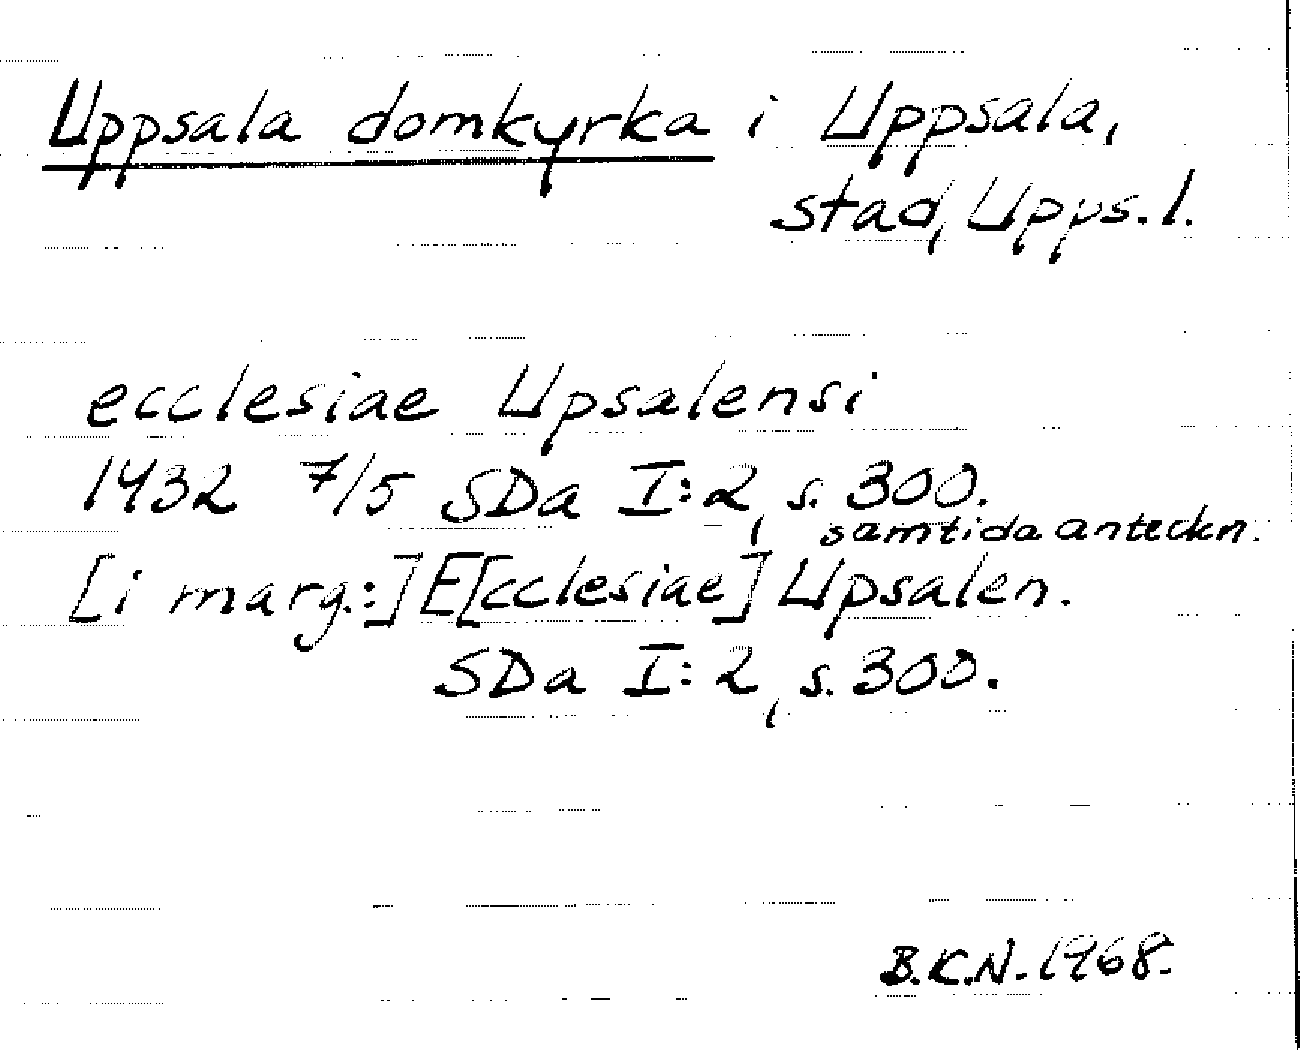 Uppsala domkyrka i Uppsala,
stad, Upps. l.
ecclesiae Upsalensi
1432 7/5 SDa I:2, s. 300.
samtida anteckn.
[i marg.:] E[cclesiae] Upsalen.
SDa I:2, s. 300.
B.K.N. 1968.